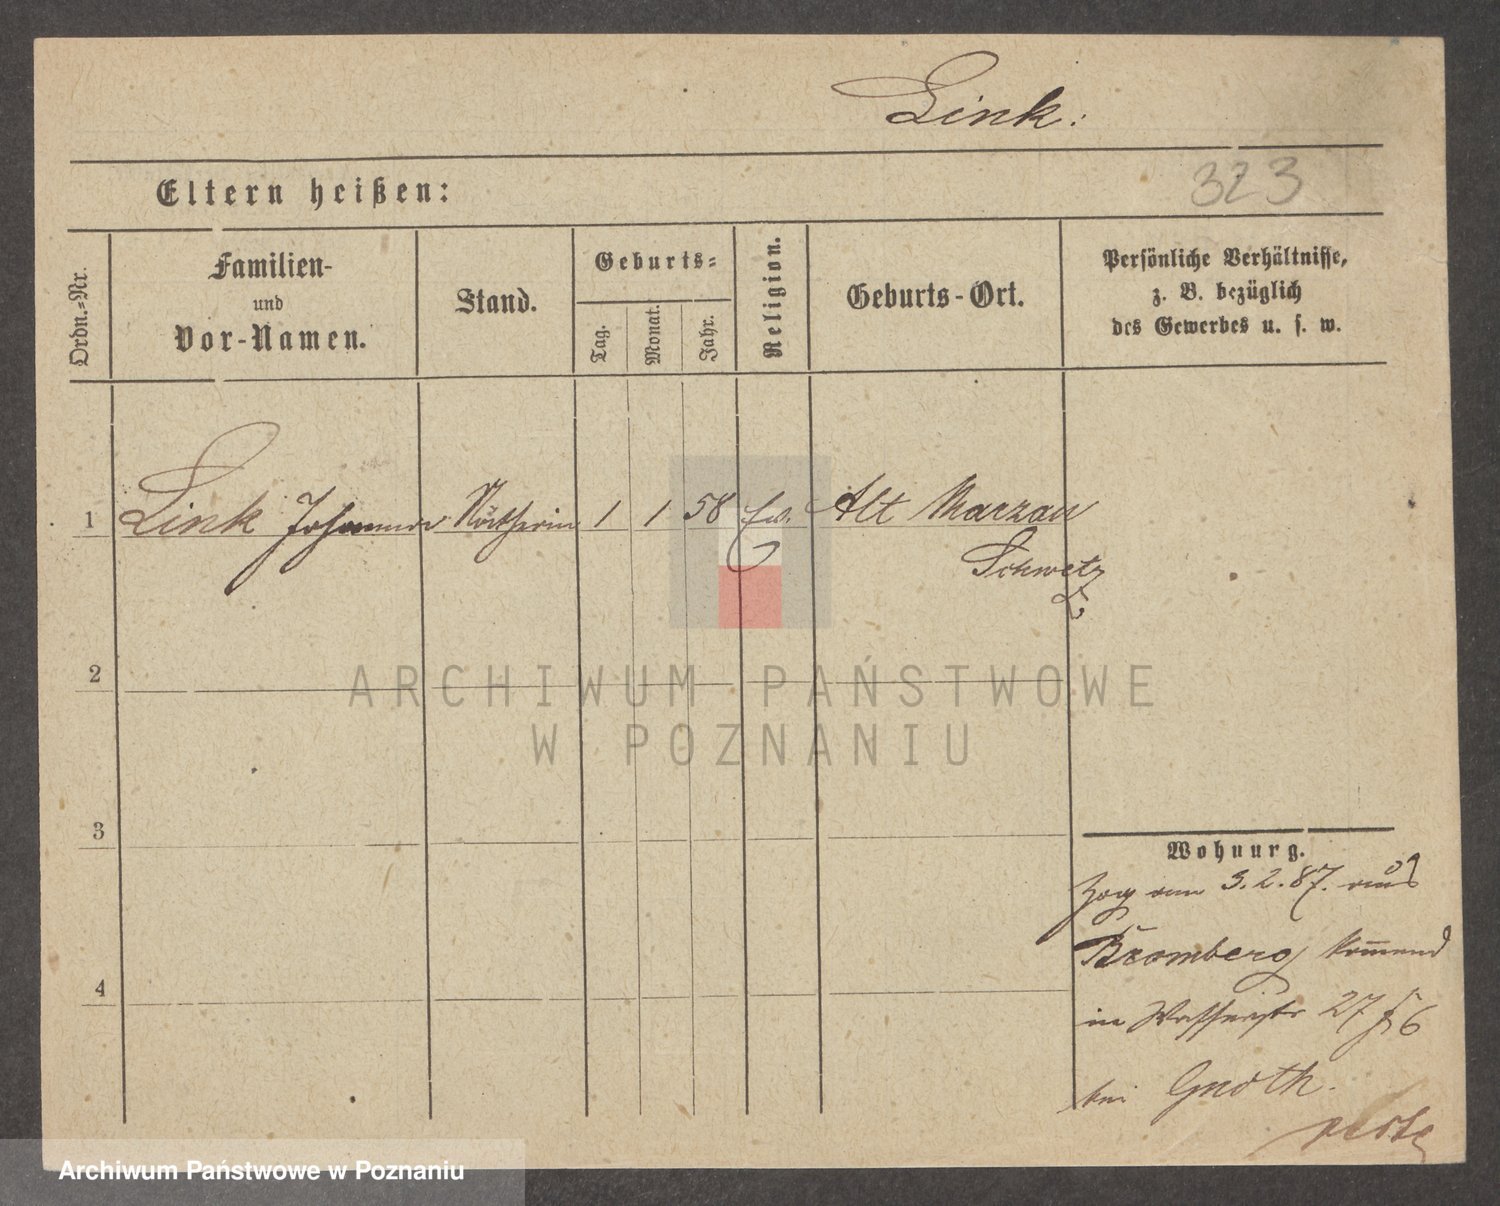 Link:
323
Eltern heißen:
Ordn.-Nr.
Familien-
und
Vor-Namen.
Stand.
Geburts-
Tag.
Monat.
Jahr.
Religion.
Geburts-Ort.
Persönliche Verhältnisse,
z. B. bezüglich
des Gewerbes u. s. w.
1 Link Johanna Nätherin 1 1 58 Alt Marzau
Schwetz
2
ARCHIWUM PAŃSTWOWE
W POZNANIU
3
Wohnung.
Zog am 3.2.87. aus
4
Bromberg kommend
in Wasserstr 27
bei Gnoth.
Archiwum Państwowe w Poznaniu